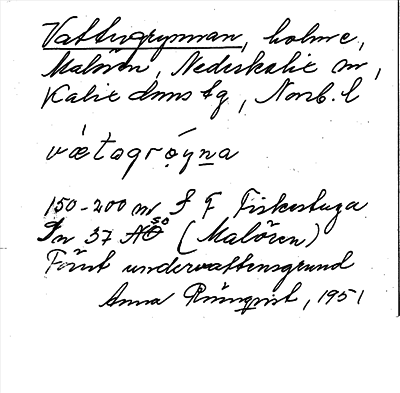 Vattugrynnan, holme,
Malören, Nederkalix sn,
Kalix dms tg, Norrb. l
vætogrǫ́yṇa
150-200 m f F Fiskestuga
In 37 AÖ 50 (Malören)
Förut undervattensgrund
Anna Rönnqvist, 1951